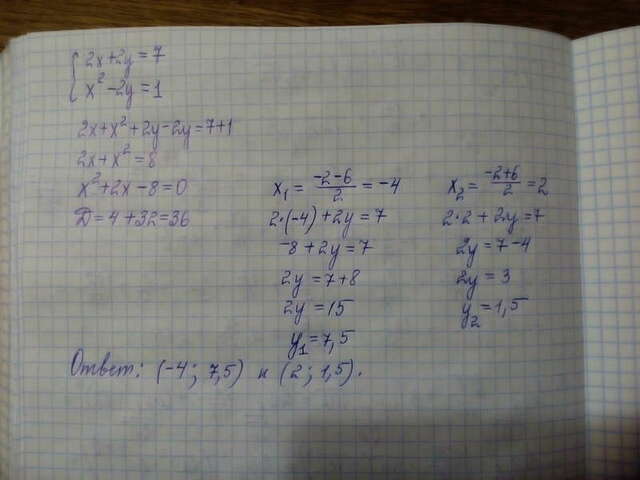 { 2x+2y=7
x²-2y=1
2x+x²+2y-2y=7+1
2x+x²=8
x²+2x-8=0
D=4+32=36
x₁=(-2-6)/2=-4
2·(-4)+2y=7
-8+2y=7
2y=7+8
2y=15
y₁=7,5
x₂=(-2+6)/2=2
2·2+2y=7
2y=7-4
2y=3
y₂=1,5
Ответ: (-4; 7,5) и (2; 1,5).